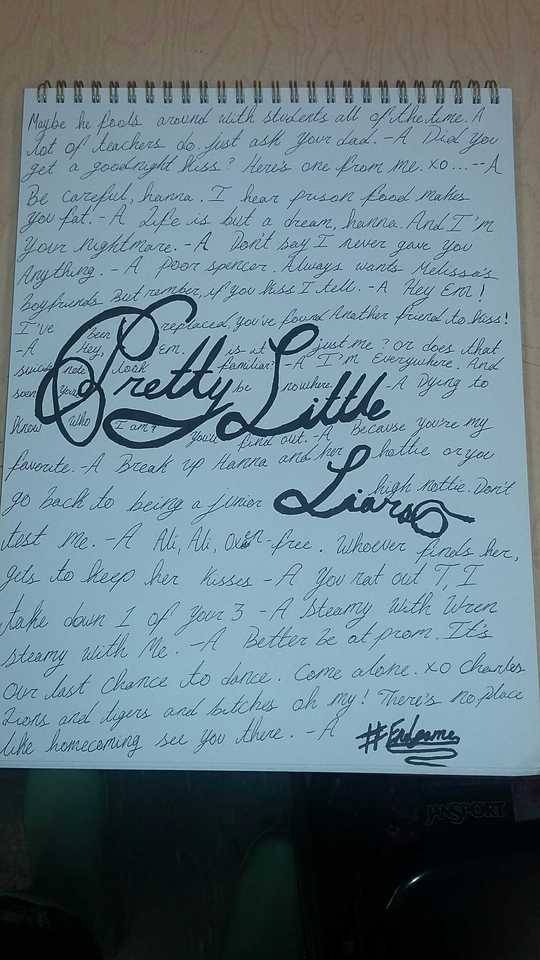 Maybe he fools around with students all of the time. A
lot of teachers do. just ask your dad. -A Did you
get a goodnight kiss? Here's one from me. xo... --A
Be careful, hanna. I hear prison food makes
you fat. -A Life is but a dream, hanna. And I'm
your nightmare. -A Don't say I never gave you
Anything. -A Poor spencer. Always wants Melissa's
Boyfriends. But rember, if you kiss I tell. -A Hey Em!
I've Been replaced, you've found Another friend to kiss!
-A Hey, Em. is it just me? or does that
suicide note look familiar? -A I'm Everywhere. And
soon you'll be nowhere. -A Dying to
Know Who I am? You'll find out. -A Because you're my
Pretty Little
favorite. -A Break up Hanna and her hottie or you
go back to being a junior high nottie. Don't
Liars
test Me. -A Ali, Ali, Oxen-free. Whoever finds her,
gets to keep her Kisses -A You rat out T, I
take down 1 of your 3 -A Steamy with Wren
Steamy with Me. -A Better be at prom. It's
Our last Chance to dance. Come alone. xo Charles
Lions and tigers and bitches oh my! There's no place
like homecoming see you there. -A #Endgame
JANSPORT